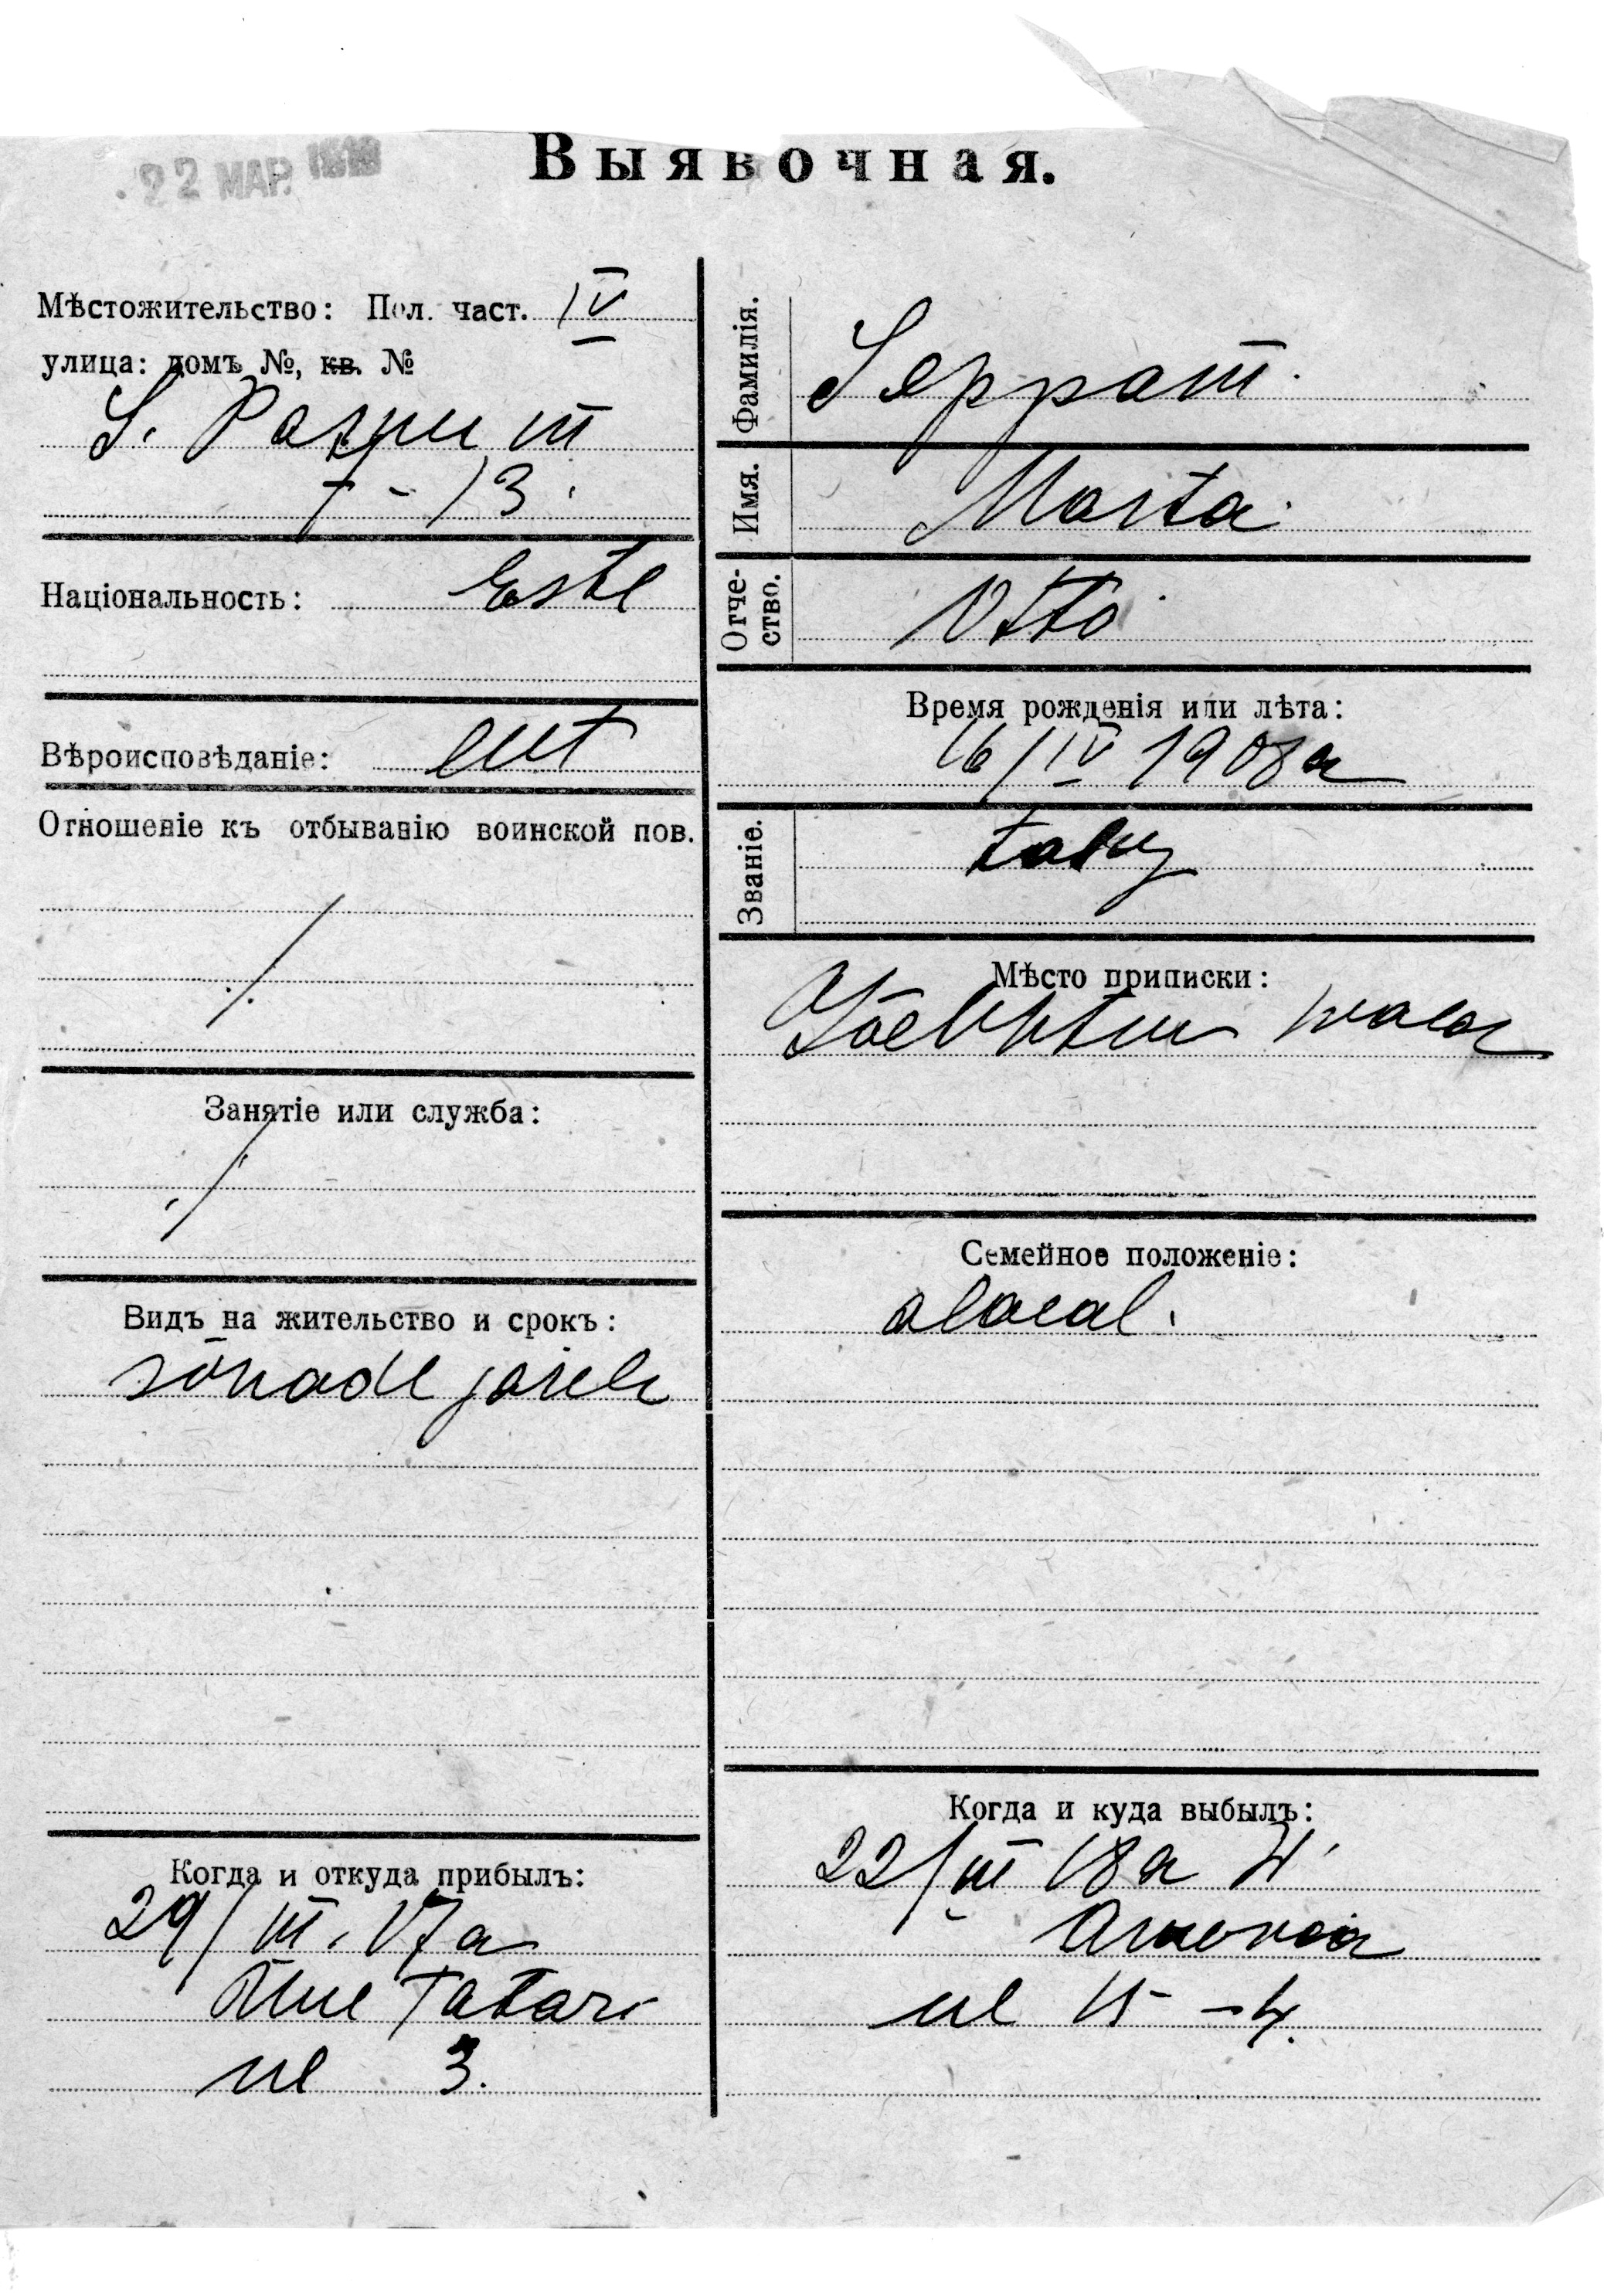 22 МАР. 1918
Выявочная.
Мѣстожительство: Пол. част. IV
улица: домъ №, кв. №
S. Pärnu m
7 - 13.
Національность: Estl
Вѣроисповѣданіе: lut
Отношеніе къ отбыванію воинской пов.
Занятіе или служба:
Видъ на жительство и срокъ:
sõnade järele
Когда и откуда прибылъ:
29/III. 17 a
Tatari
ul 3.
Фамилія.
Имя. Marta
Отчество. Otto
Время рожденія или лѣта:
16/IV 1908 a
Званіе. talup
Мѣсто приписки:
walla
Семейное положеніе:
alaeal.
Когда и куда выбылъ:
22/III 18 a
ul 15 - 4.